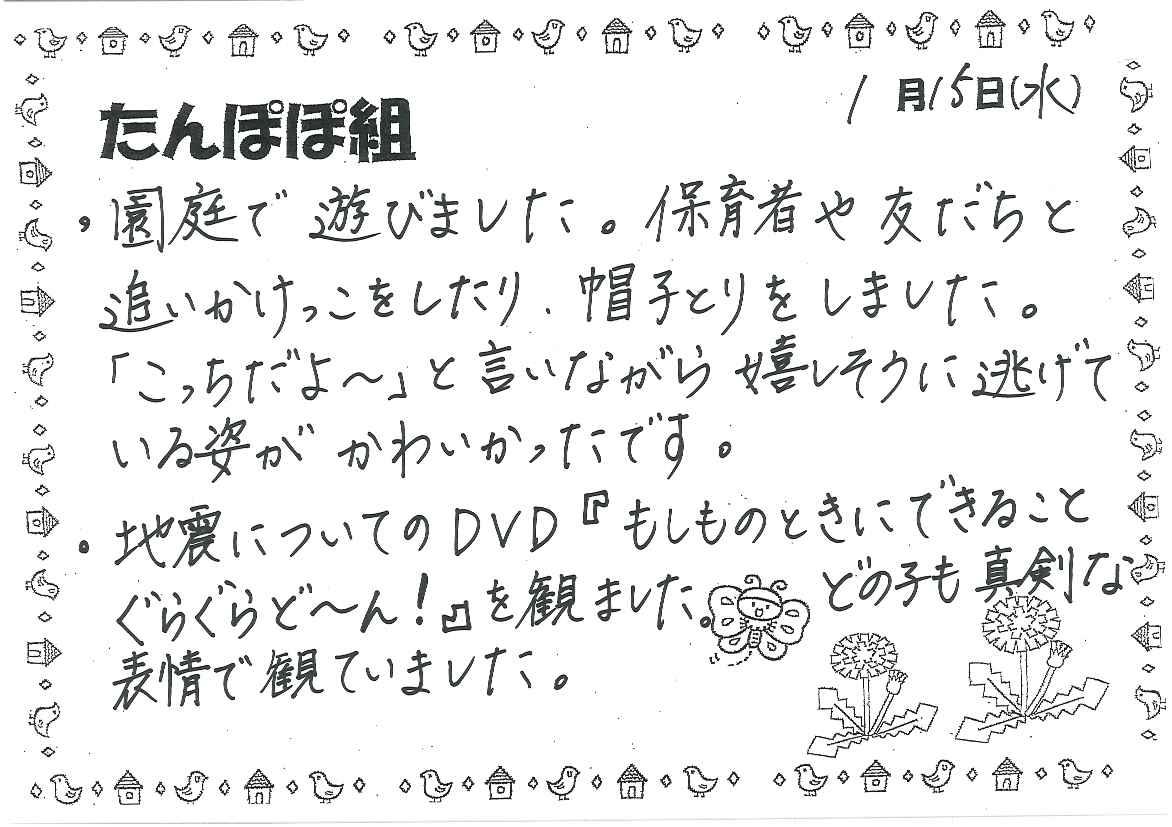 1月15日(水)
たんぽぽ組
・園庭で遊びました。保育者や友だちと
追いかけっこをしたり、帽子とりをしました。
「こっちだよ～」と言いながら嬉しそうに逃げて
いる姿がかわいかったです。
・地震についてのDVD『もしものときにできること
ぐらぐらど～ん!』を観ました。どの子も真剣な
表情で観ていました。